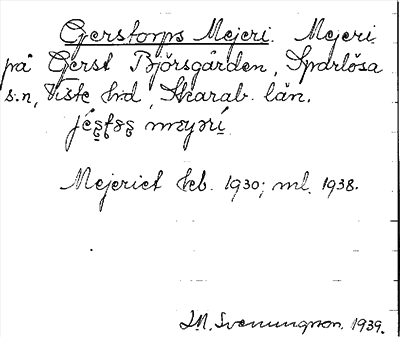 Gerstorps Mejeri. Mejeri
på Gerst Björsgården, Sparlösa
s:n, Viste hd, Skarab. län.
Mejeriet heb. 1930; ml. 1938.
I.M. Svenungson. 1939.